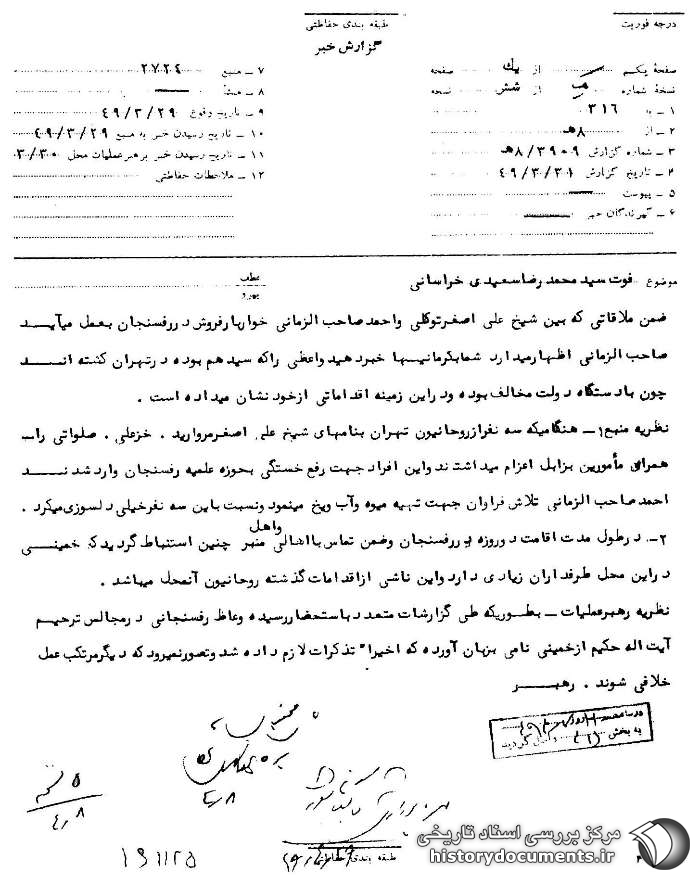 درجه فوریت
طبقه بندی حفاظتی
گزارش خبر
صفحهٔ یکم از یك صفحه
نسخهٔ شماره از شش نسخه
۱ – به ۳۱۶
۲ – از ۸هـ
۳ – شماره گزارش ۸/۳۹۰۹هـ
۴ – تاریخ گزارش ۴۹/۳/۳۱
۵ – پیوست
۶ – گیرندگان خبر
۷ – منبع ۲۷۲۴
۸ – منشأ
۹ – تاریخ وقوع ۴۹/۳/۲۹
۱۰ – تاریخ رسیدن خبر به منبع ۴۹/۳/۲۹
۱۱ – تاریخ رسیدن خبر برهبر عملیات محل ۳/۳۰
۱۲ – ملاحظات حفاظتی
موضوع فوت سید محمد رضا سعیدی خراسانی
عطف
پیرو
ضمن ملاقاتی که بین شیخ علی اصغر توکلی واحمد صاحب الزمانی خواربارفروش در رفسنجان بعمل میآیـد
صاحب الزمانی اظهار میدارد شما بکرمانیها خبر دهید واعظی را که سید هم بوده در تهران کشته انــد
چون با دستگاه دولت مخالف بوده ودر این زمینه اقداماتی از خود نشان میداده است .
نظریه منبع ۱ــ هنگامیکه سه نفر از روحانیون تهران بنامهای شیخ علی اصغر مروارید . خزعلی . صلواتی راــ
همراه مأمورین بزابل اعزام میداشتند واین افراد جهت رفع خستگی بحوزه علمیه رفسنجان وارد شدنــد
احمد صاحب الزمانی تلاش فراوان جهت تهیه میوه وآب ویخ مینمود ونسبت باین سه نفر خیلی دلسوزی میکرد .
۲ــ در طول مدت اقامت دوروزه در رفسنجان وضمن تماس با اهالی واهل منبر چنین استنباط گردید که خمینــی
در این محل طرفداران زیادی دارد واین ناشی از اقدامات گذشته روحانیون آنمحل میباشد .
نظریه رهبر عملیات ــ بطوریکه طی گزارشات متعدد باستحضار رسیده وعاظ رفسنجانی در مجالس ترحیــم
آیت اله حکیم از خمینی نامی بزبان آورده که اخیرا" تذکرات لازم داده شد وتصور نمیرود که دیگر مرتکب عمل
خلافی شوند . رهبــر
به بخش گردید
۴٫۸
۴٫۸
طبقه بندی حفاظتی
۱۹۱۱۲۵
مرکز بررسی اسناد تاریخی
historydocuments.ir